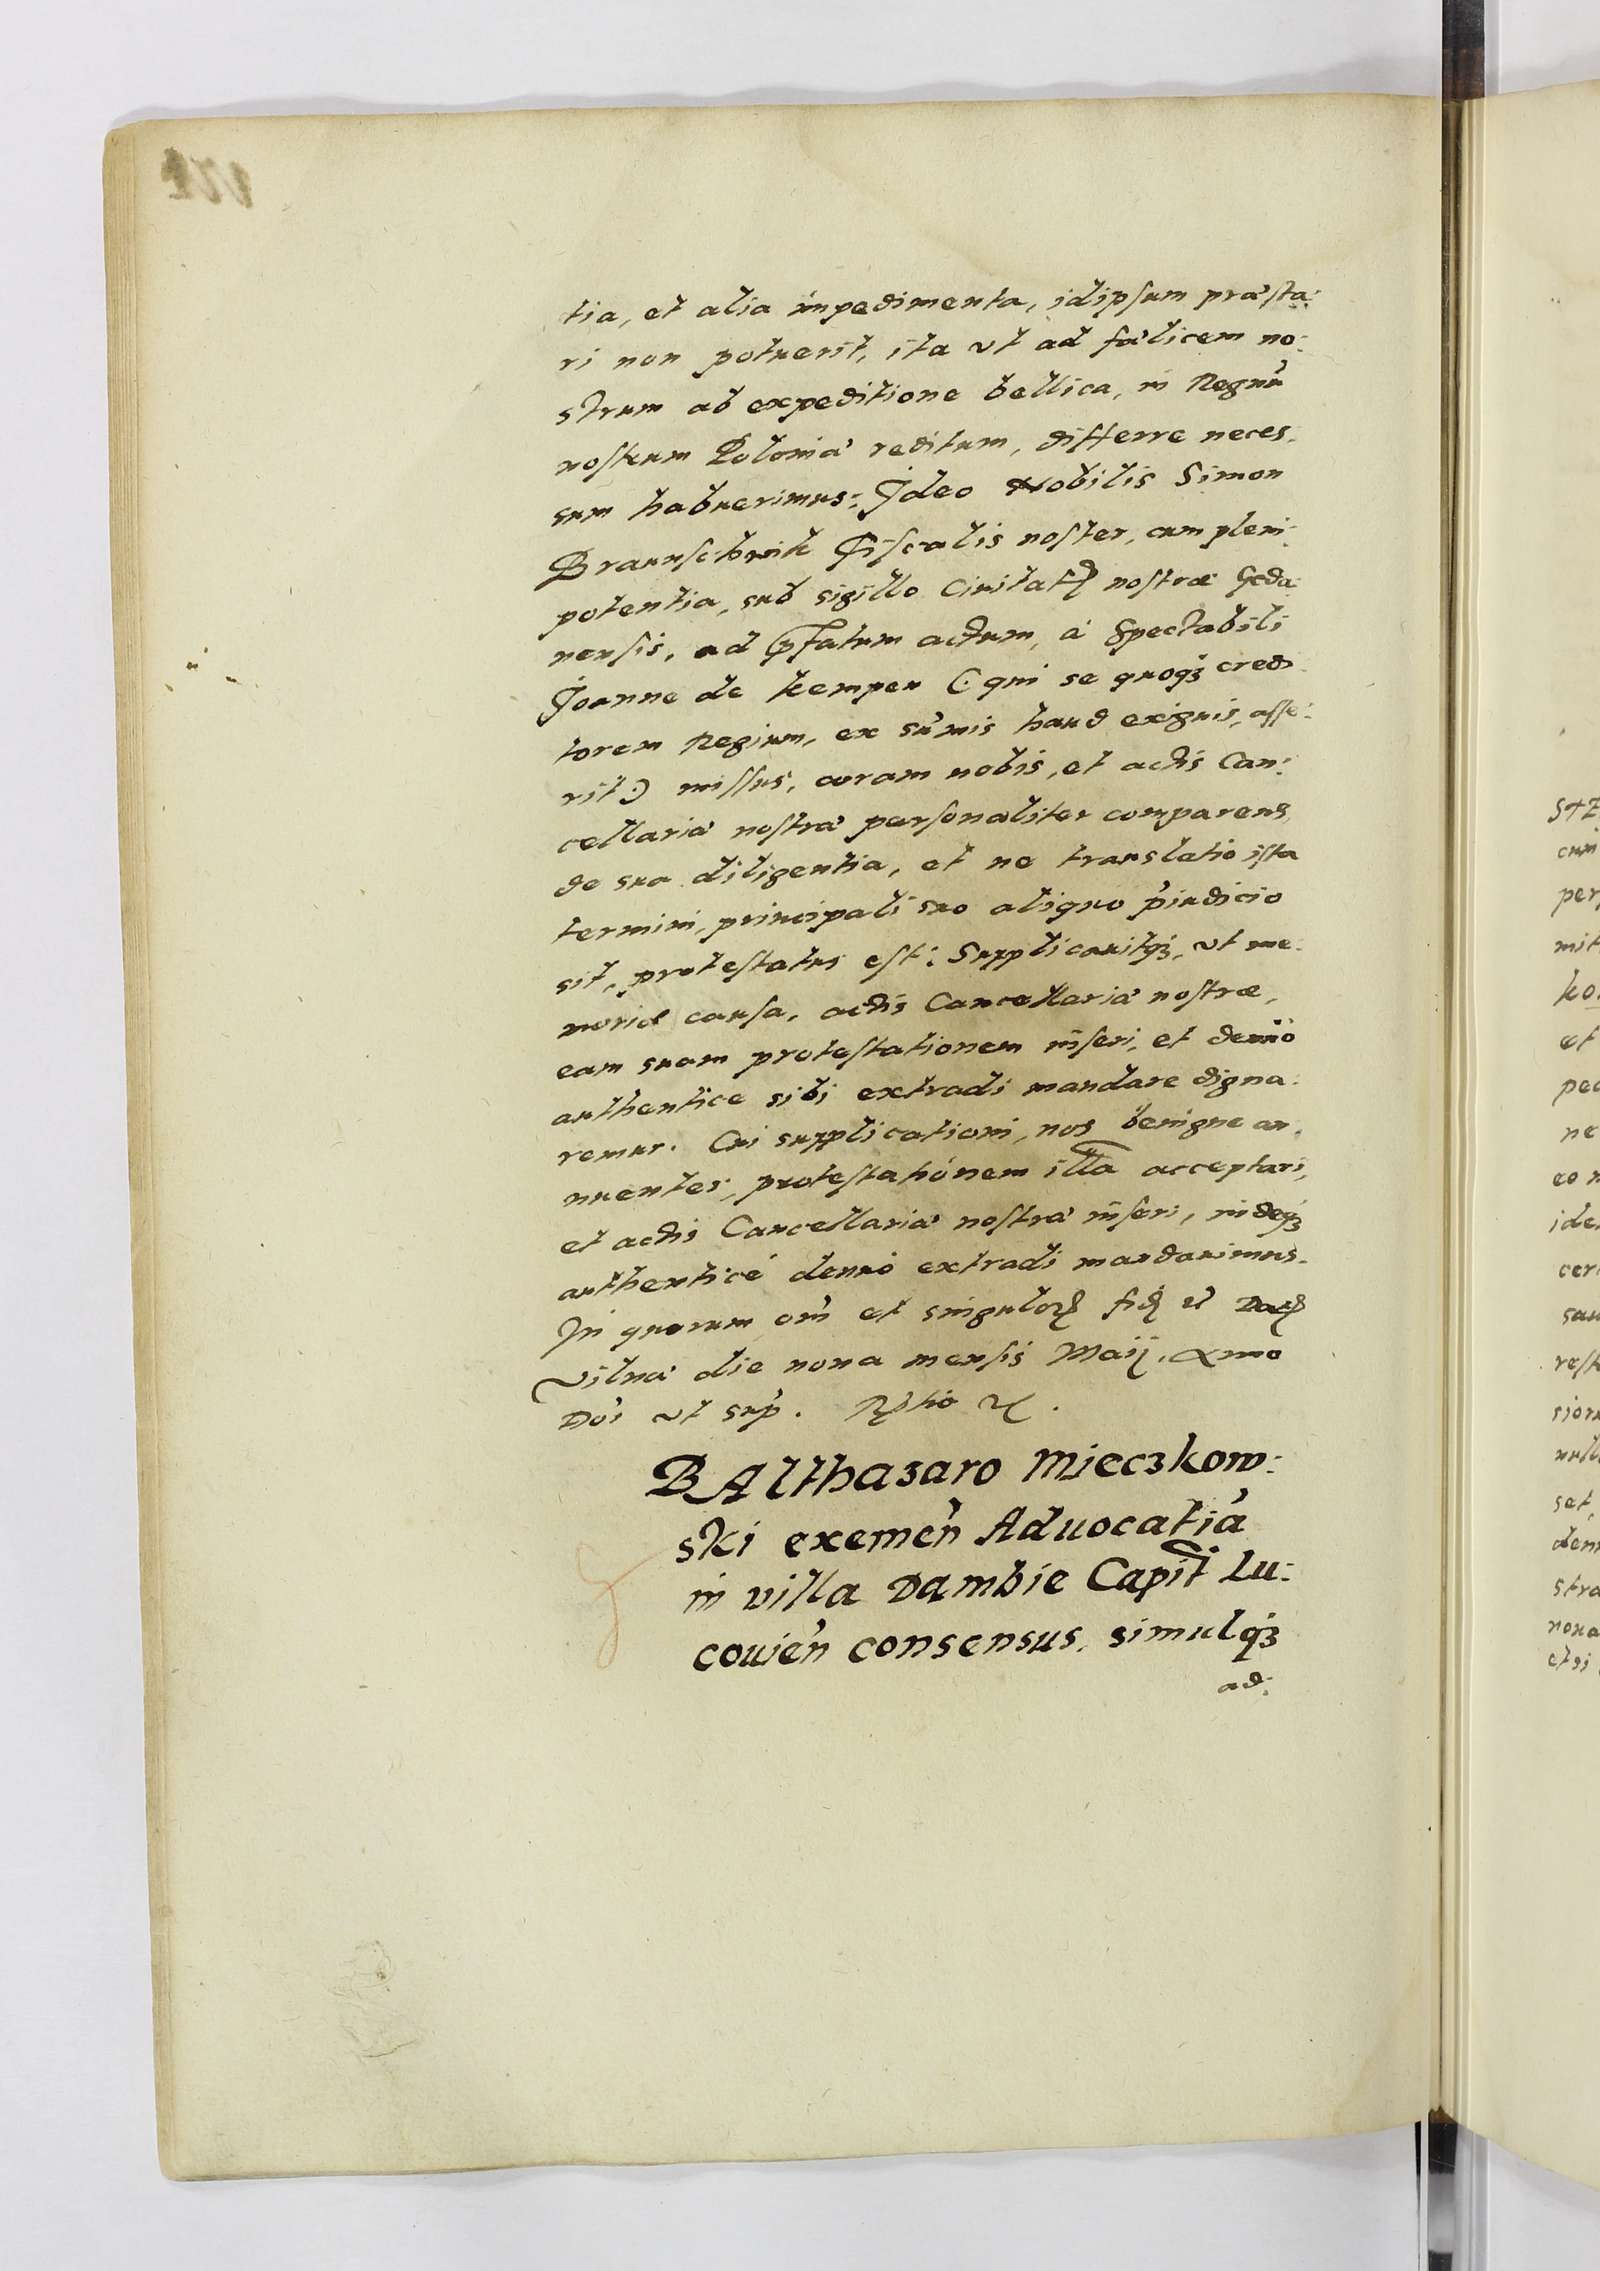 tia, et alia impedimenta, idipsum præsta:
ri non potuerit, ita vt ad fælicem no:
strum ab expeditione bellica, in Regnũ
nostrum Poloniæ reditum, differre neces,
sum habuerimus: Ideo Nobilis Simon
Braunschwik Fiscalis noster, cum pleni
potentia, sub sigillo Civitatꝭ nostræ Geda:
nensis, ad p̃fatum actum, à Spectabili
Joanne de Kempen (: qui se quoqꝫ credi
torem Regium, ex sũmis haud exiguis, asse:
rit :) missus, coram nobis, et actis Can:
cellariæ nostræ personaliter comparens,
de sua diligentia, et ne translatio ista
termini, principali suo aliquo p̃iudicio
sit, protestatus est: Supplicauitqꝫ, vt me:
moriæ causa, actis Cancellariæ nostræ,
eam suam protestationem inseri, et denuo
authentice sibi extradi mandare digna:
remur. Cui supplicationi, nos benigne an,
nuentes, protestationem illã acceptari,
et actis Cancellariæ nostræ inseri, indeqꝫ
authenticé denuò extradi mandauimus.
In quorum om̃ et singulorꝭ fidꝭ etc Datꝭ
Vilnæ die nona mensis Maij. Anno
Dñi vt sup̃. Rꝭtio etc.
BAlthazaro Mieczkow:
ski exemeñ Aduocatiæ
in villa Dambie Capit̃ Lu:
coui&#101;ñ consensus, simulqꝫ
ad: